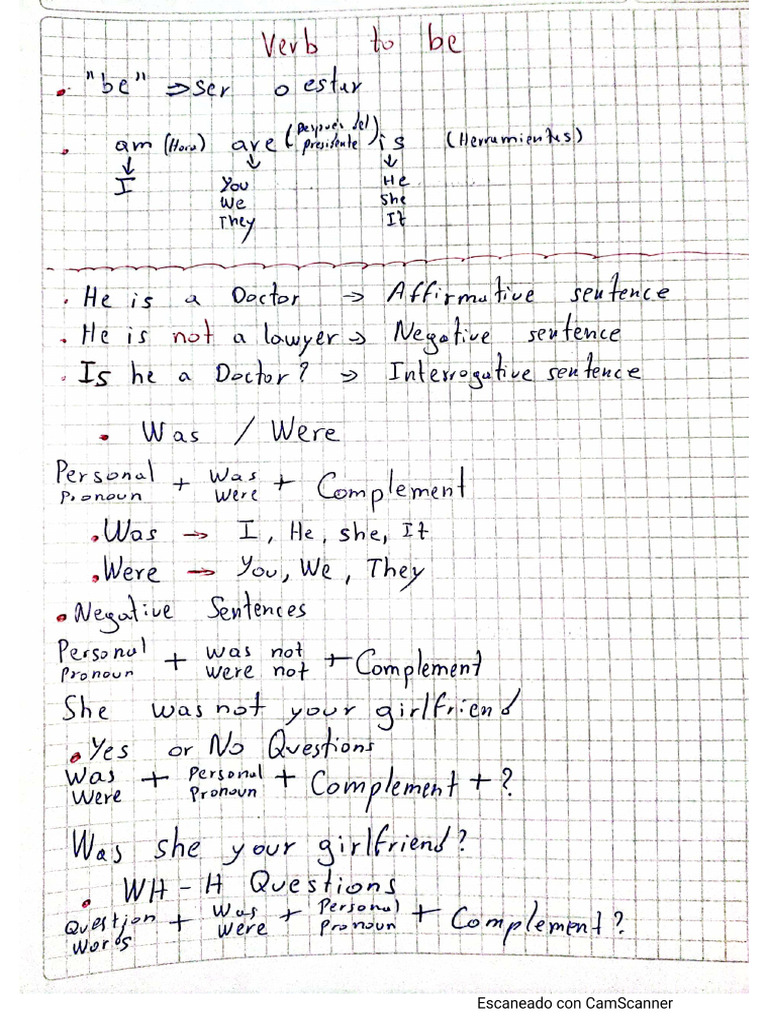 Verb to be
• "be" ⇒ ser o estar
• am (Hora) are (Después del presidente) is (Herramientas)
↓ ↓ ↓
I You He
We She
They It
• He is a Doctor → Affirmative sentence
• He is not a lawyer → Negative sentence
• Is he a Doctor? → Interrogative sentence
• Was / Were
Personal Pronoun + Was Were + Complement
• Was → I, He, she, It
• Were → You, We, They
• Negative Sentences
Personal Pronoun + was not were not + Complement
She was not your girlfriend
• Yes or No Questions
Was Were + Personal Pronoun + Complement + ?
Was she your girlfriend?
• WH-H Questions
Question words + Was Were + Personal Pronoun + Complement?
Escaneado con CamScanner